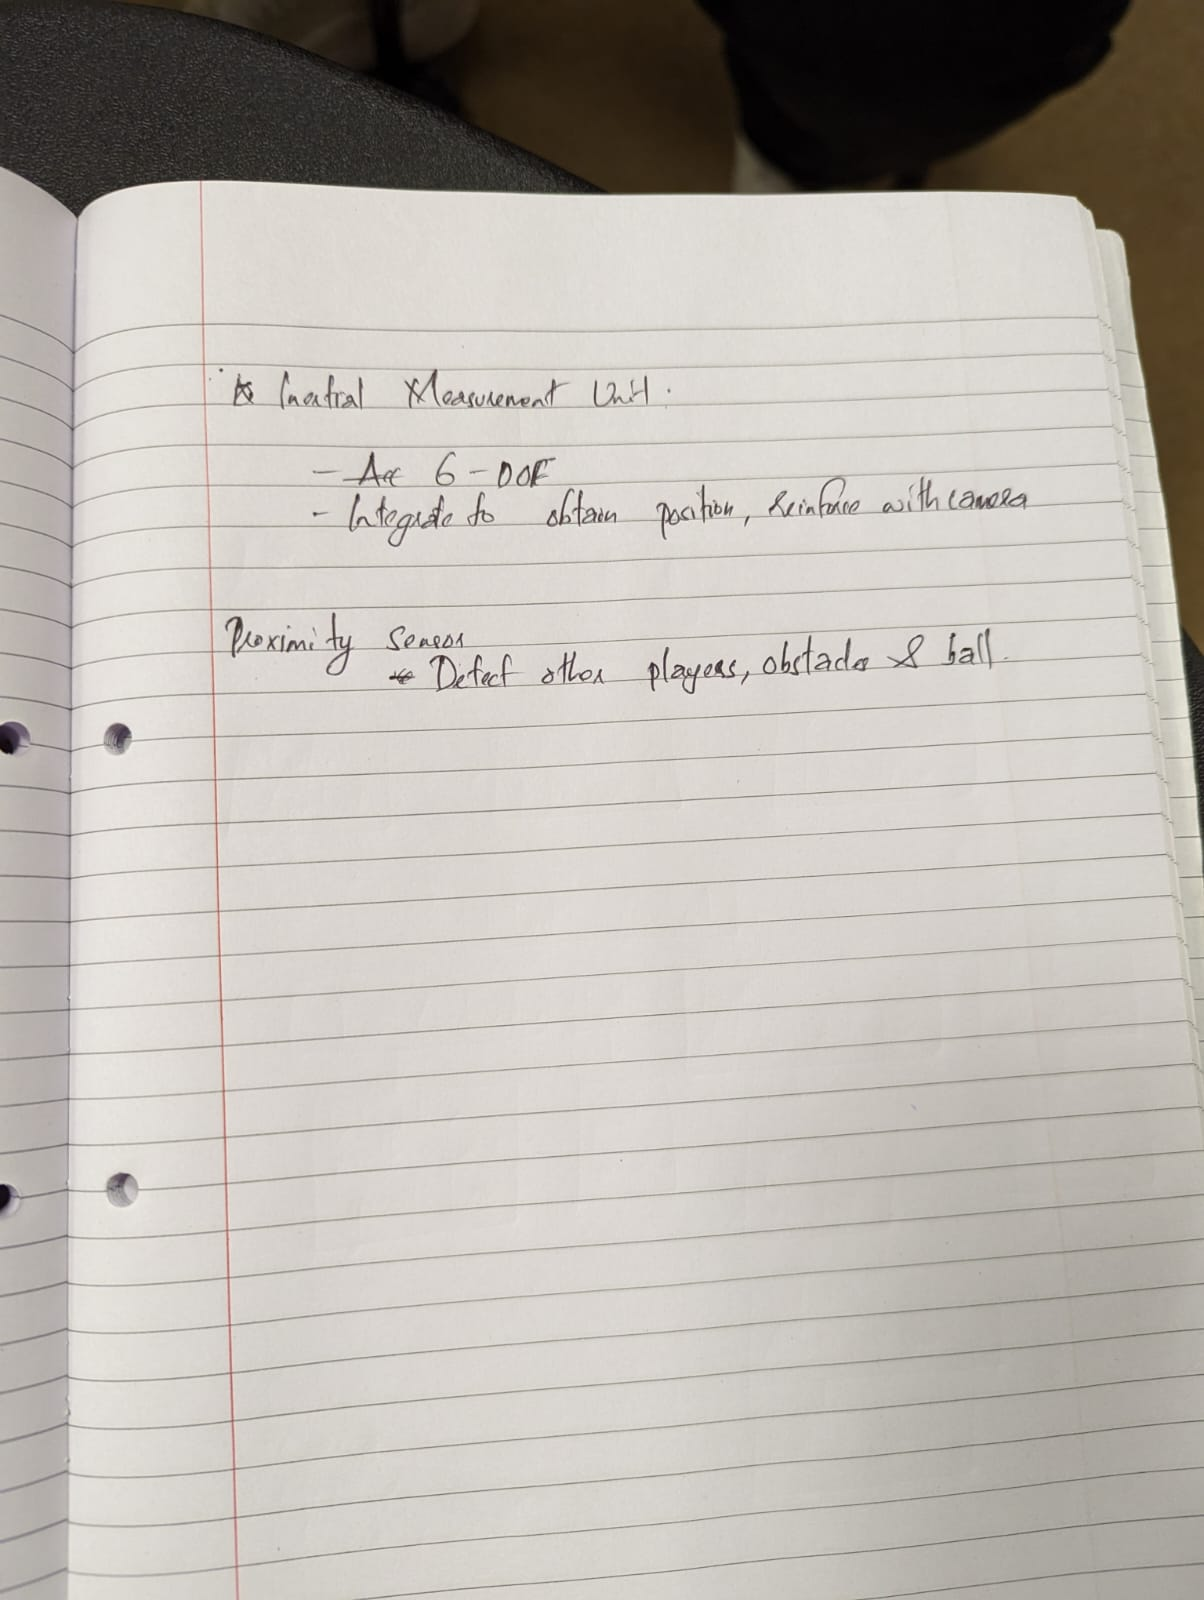 * Inertial Measurement Unit.
- Acc 6-DOF
- Integrate to obtain position, Reinforce with camera
Proximity Sensor
* Detect other players, obstacles & ball.